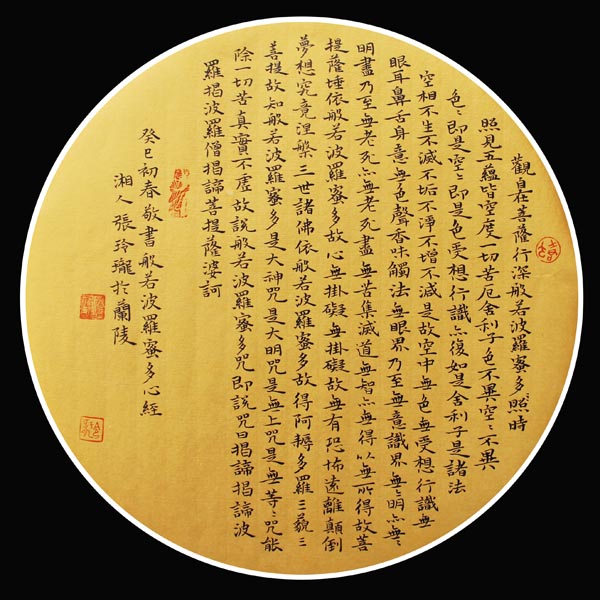 觀自在菩薩行深般若波羅蜜多照時
照見五蘊皆空度一切苦厄舍利子色不異空〻不異
色〻即是空〻即是色受想行識亦復如是舍利子是諸法
空相不生不滅不垢不淨不增不減是故空中無色無受想行識無
眼耳鼻舌身意無色聲香味觸法無眼界乃至無意識界無〻明亦無〻
明盡乃至無老死亦無老死盡無苦集滅道無智亦無得以無所得故菩
提薩埵依般若波羅蜜多故心無掛礙無掛礙故無有恐怖遠離顛倒
夢想究竟涅槃三世諸佛依般若波羅蜜多故得阿耨多羅三藐三
菩提故知般若波羅蜜多是大神咒是大明咒是無上咒是無等〻咒能
除一切苦真實不虛故說般若波羅蜜多咒即說咒曰揭諦揭諦波
羅揭波羅僧揭諦菩提薩婆訶
癸巳初春敬書般若波羅蜜多心經
湘人張玲瓏於蘭陵